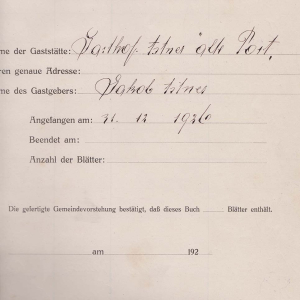 me der Gaststätte: Gasthof "alte Post"
ren genaue Adresse:
me des Gastgebers: Jakob
Angefangen am: 31. 12 1936
Beendet am:
Anzahl der Blätter:
Die gefertigte Gemeindevorstehung bestätigt, daß dieses Buch Blätter enthält.
am 192